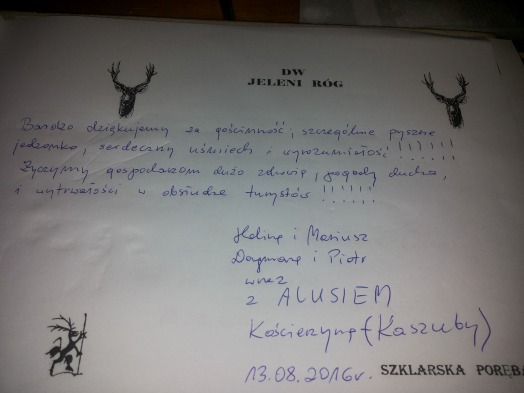 DW
JELENI RÓG
Bardzo dziękujemy za gościnność, szczególnie pyszne
jedzonko, serdeczny uśmiech i wyrozumiałość !!!!!!
Życzymy gospodarzom dużo zdrowia, pogody ducha,
i wytrwałości w obsłudze turystów !!!!!!
Halina i Mariusz
Dagmara i Piotr
wraz
z ALUSIEM
Kościerzyna (Kaszuby)
13.08.2016r. SZKLARSKA PORĘBA